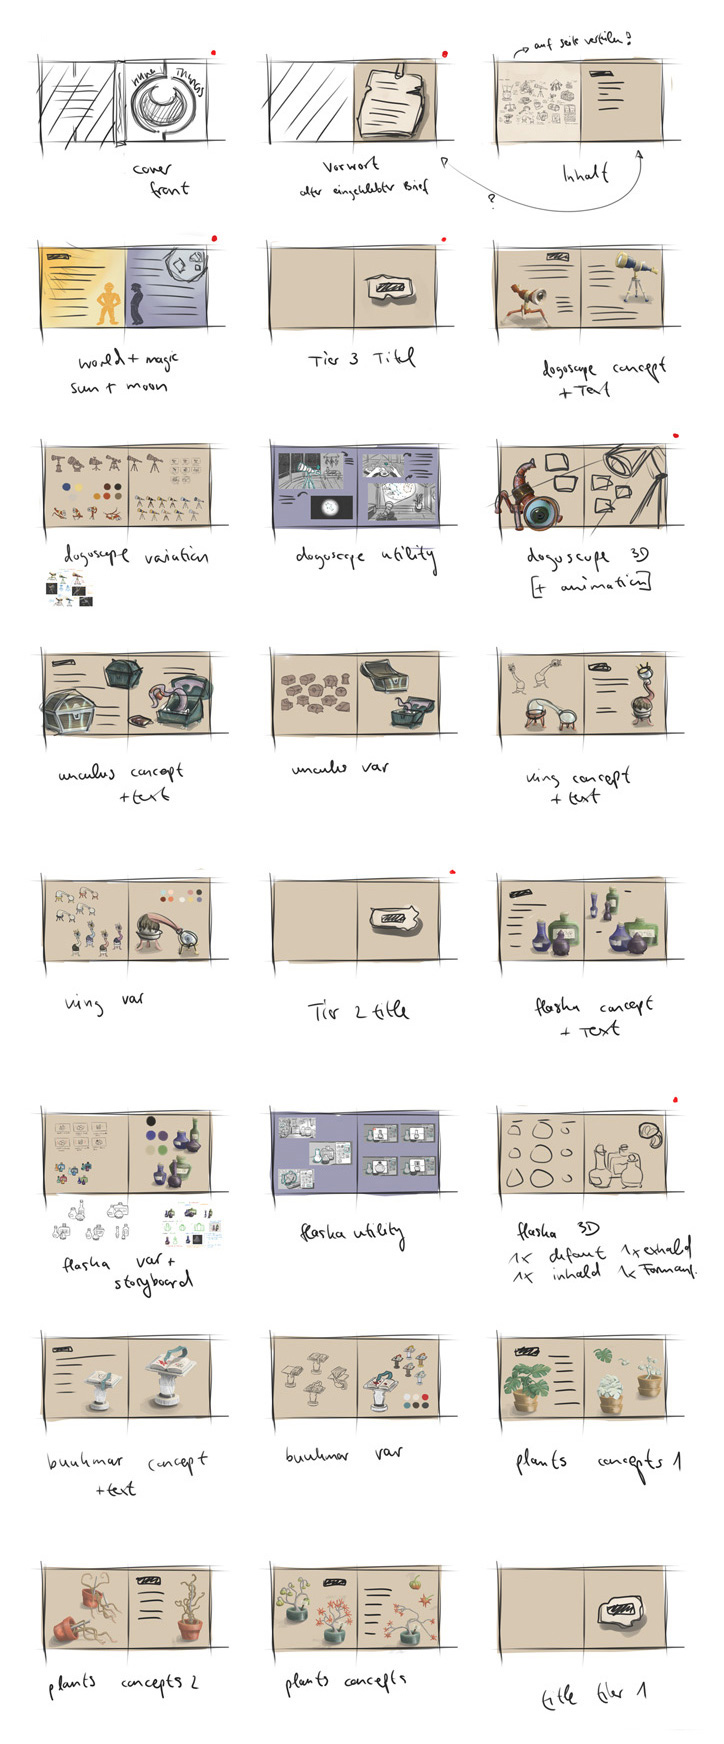 → auf seite verteilen?
Things
cover
front
Vorwort
alter eingeklebter Brief
?
Inhalt
world + magic
sun + moon
Tier 3 Titel
dogoscope concept
+ Text
dogoscope variation
dogoscope utility
dogoscope 3D
[+ animation]
unculus concept
+ text
unculus var
ving concept
+ text
ving var
Tier 2 title
flasha concept
+ Text
flasha var +
storyboard
flasha utility
flasha 3D
1x default 1x exhald
1x inhald 1x
buukmar concept
+ text
buukmar var
plants concepts 1
plants concepts 2
plants concepts
title tier 1